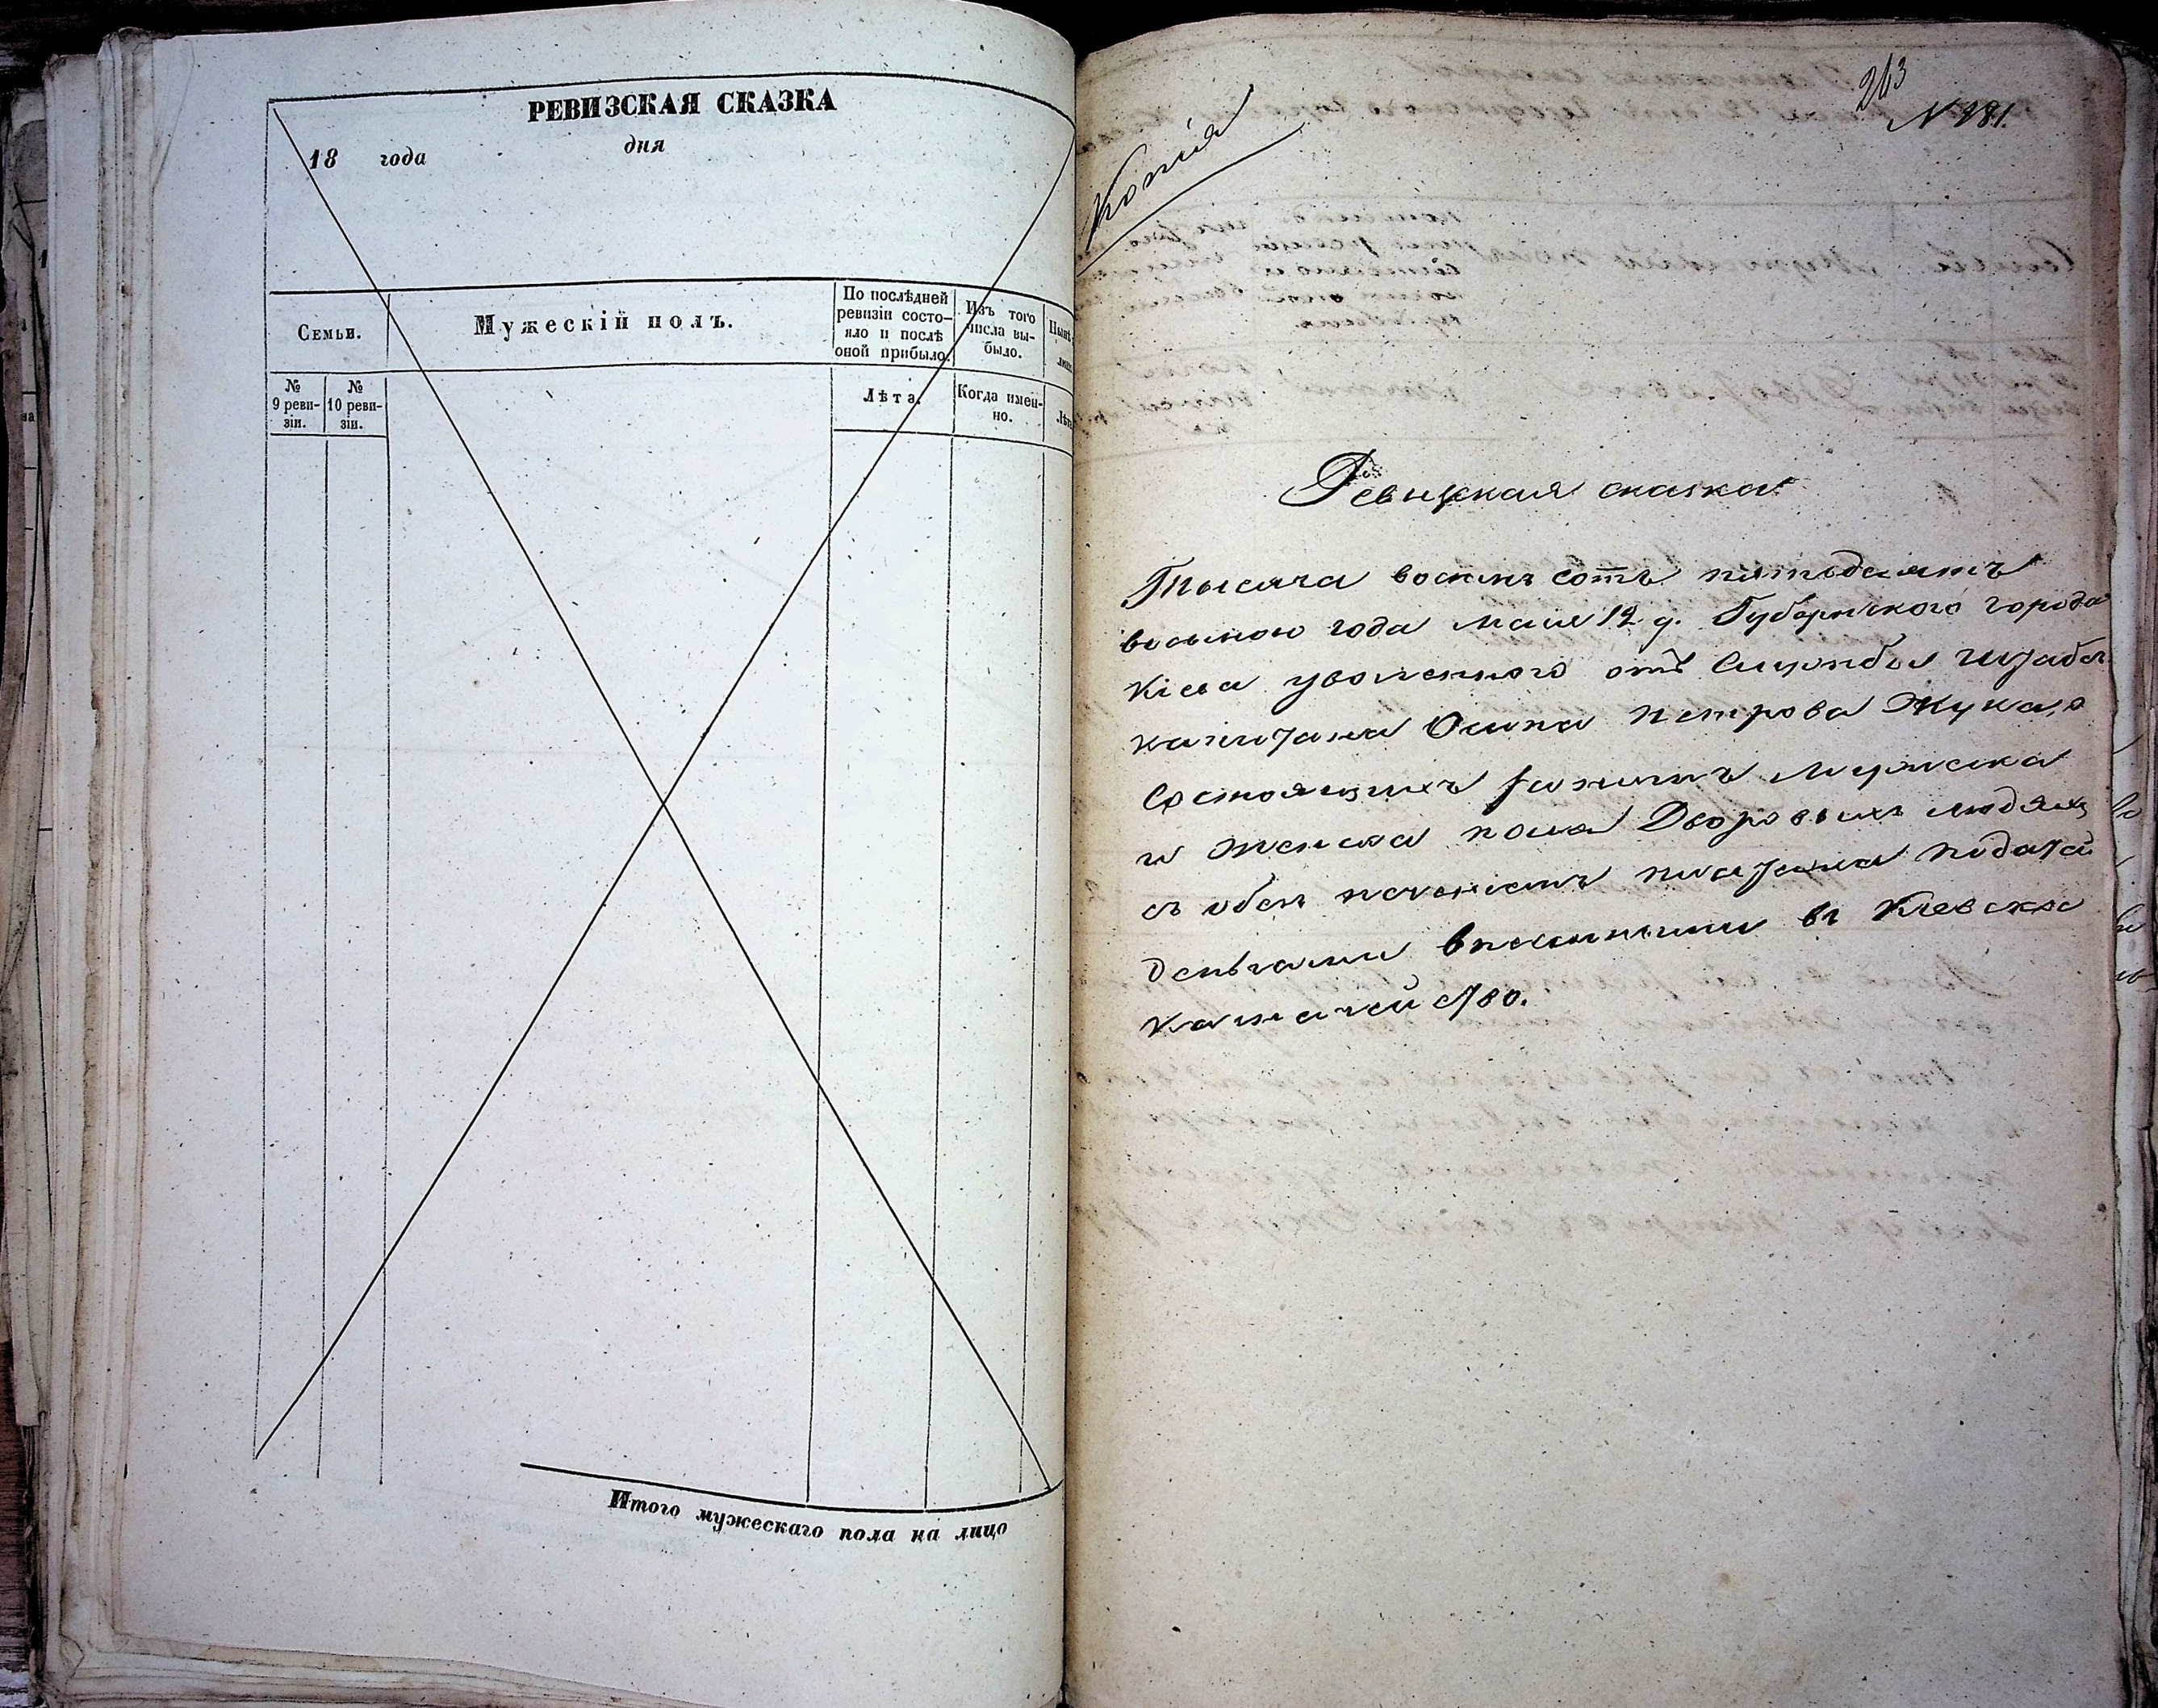 РЕВИЗСКАЯ СКАЗКА
18 года дня
Семьи.
Мужескій полъ.
По послѣдней
ревизіи состо-
яло и послѣ
оной прибыло.
Изъ того
числа вы-
было.
№
9 реви-
зіи.
№
10 реви-
зіи.
Лѣта.
Когда имен-
но.
Итого мужескаго пола на лицо
263
№ 281.
Копія
Ревизская сказка
Тысяча восемь сотъ пятьдесятъ
восьмого года мая 12 д. Губернского города
Кіева уволенного отъ службы штабсъ
капитана Осипа Петрова Жука, о
состоящихъ за нимъ мужеска
и женска пола Дворовыхъ людяхъ
съ обезпеченіемъ платежа податей
деньгами внесенными въ Киевское
казначей №80.